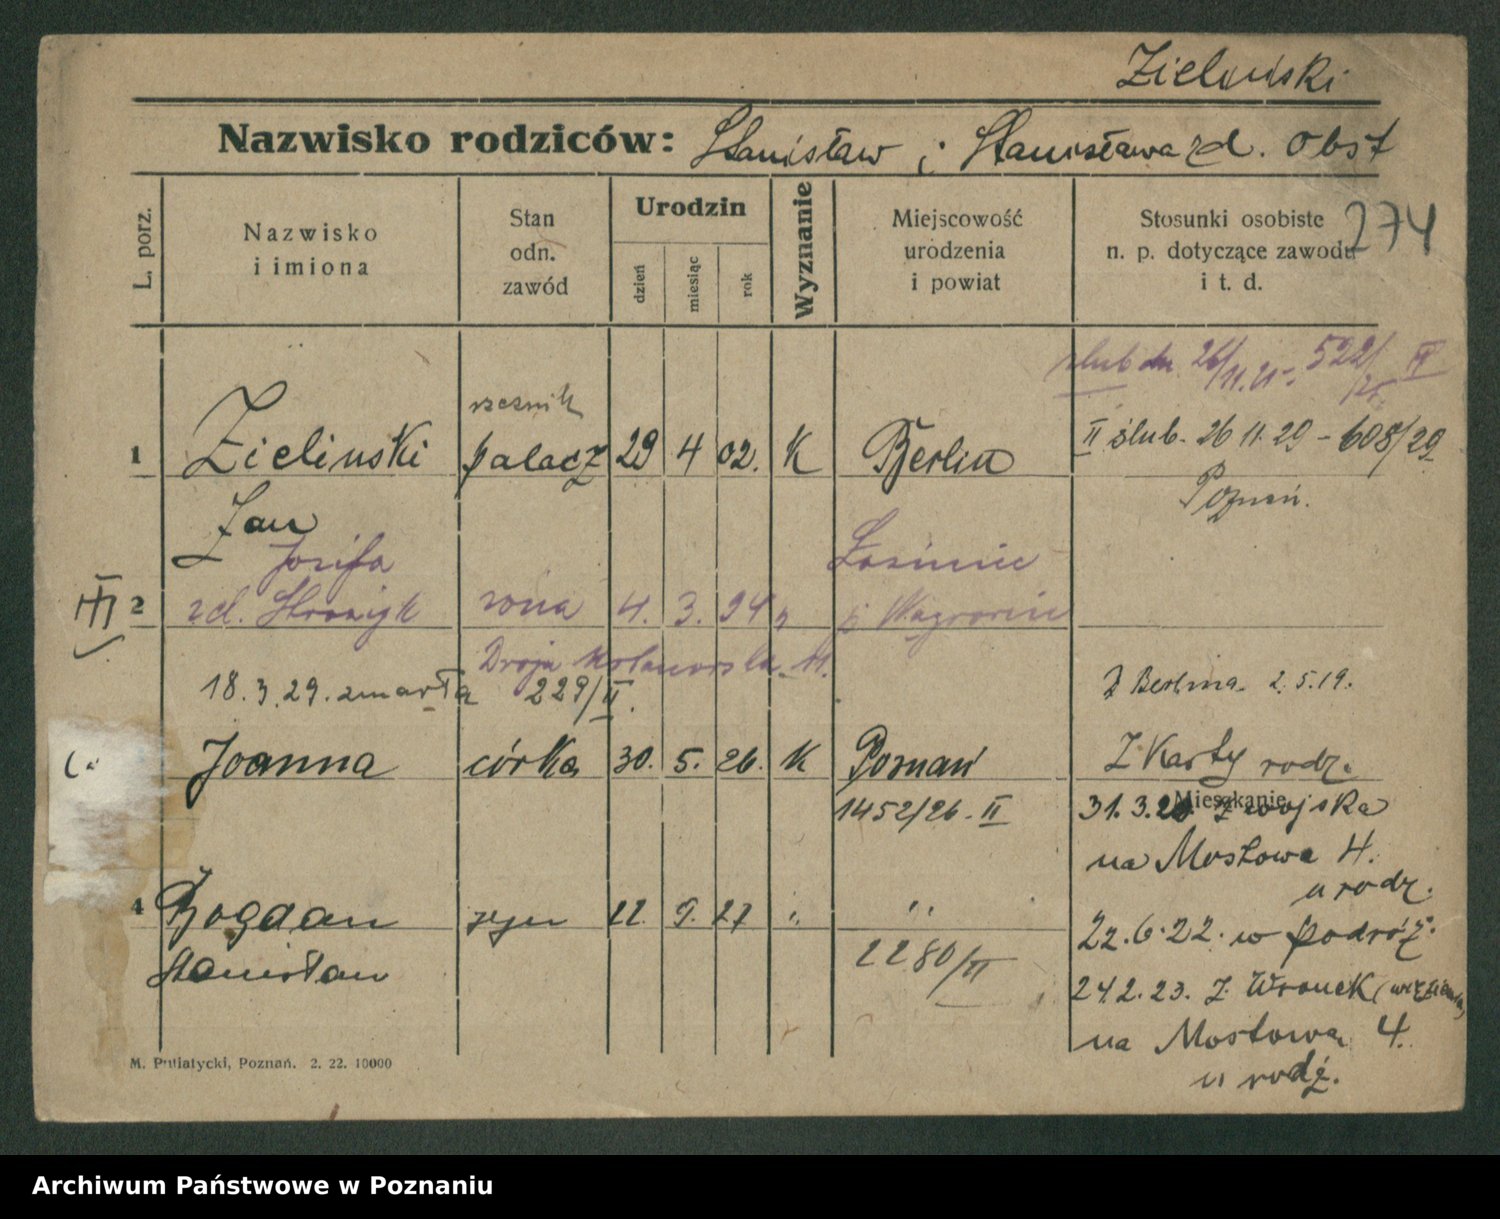 Zieliński
Nazwisko rodziców: Stanisław i Stanisława zd. Obst
274
L. porz.
Nazwisko
i imiona
Stan
odn.
zawód
Urodzin
dzień
miesiąc
rok
Wyznanie
Miejscowość
urodzenia
i powiat
Stosunki osobiste
n. p. dotyczące zawodu
i t. d.
ślub dn. 26/11.25. 522/25 IV
rzeźnik
1 Zielinski palacz 29 4 02. K Berlin II ślub. 26 11. 29 - 608/29
Jan
Poznań.
Józefa
III 2 zd. żona 4. 3. 94 p. Wągrowiec
Droga M.
18. 3. 29. zmarła 229/II.
Z Berlina 2.5.19.
Joanna córka 30. 5. 26. K Poznań Z Karty rodz.
1452/26 - II
Mieszkanie
31. 3. z wojska
na Mostowa 4.
u rodz.
4 Bogdan syn 9. 27 " "
Stanisław
2280/II
22. 6. 22. w podróż.
24 2. 23. z Wronek (więzienia)
na Mostowa 4.
u rodz.
M. Putiatycki, Poznań. 2. 22. 10000
Archiwum Państwowe w Poznaniu